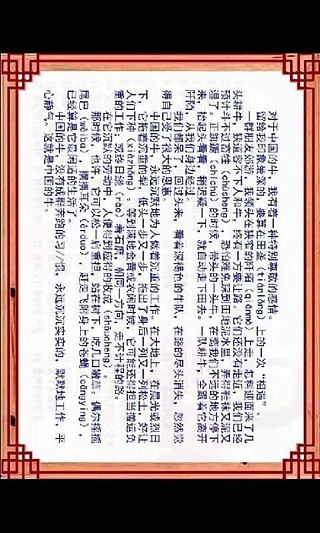 对于中国的牛，我有着一种特别尊敬的感情。
留给我印象最深的，要算在田垄（tiánlǒng）上的一次“相遇”
一群朋友郊游，我领头在狭窄的阡陌（qiānmò）上走，怎料迎面来了几
头耕牛，狭道容不下人和牛，终有一方要让路。它们还没有走近，我们已经
预计斗不过畜牲（chùsheng），恐怕难免踩到田地泥水里，弄得鞋袜又泥又
湿了。正踟蹰（chíchú）的时候，带头的一头牛，在离我们不远的地方停下
来，抬起头看看，稍迟疑一下，就自动走下田去。一队耕牛，全跟着它离开
阡陌，从我们身边经过。
我们都呆了，回过头来，看着深褐色的牛队，在路的尽头消失，忽然觉
得自己受了很大的恩惠。
中国的牛，永远沉默地为人做着沉重的工作。在大地上，在晨光或烈日
下，它拖着沉重的犁，低头一步又一步，拖出了身后一列又一列松土，好让
人们下种（xiàzhǒng）。等到满地金黄或农闲时候，它可能还得担当搬运负
重的工作；或终日绕（rào）着石磨，朝同一方向，走不计程的路。
在它沉默的劳动中，人便得到应得的收成（shōucheng）。
那时候，也许，它可以松一肩重担，站在树下，吃几口嫩草。偶尔摇摇
尾巴（wěiba），摆摆耳朵（ěrduo），赶走飞附身上的苍蝇（cāngying），
已经算是它最闲适的生活了。
中国的牛，没有成群奔跑的习//惯，永远沉沉实实的，默默地工作，平
心静气。这就是中国的牛。